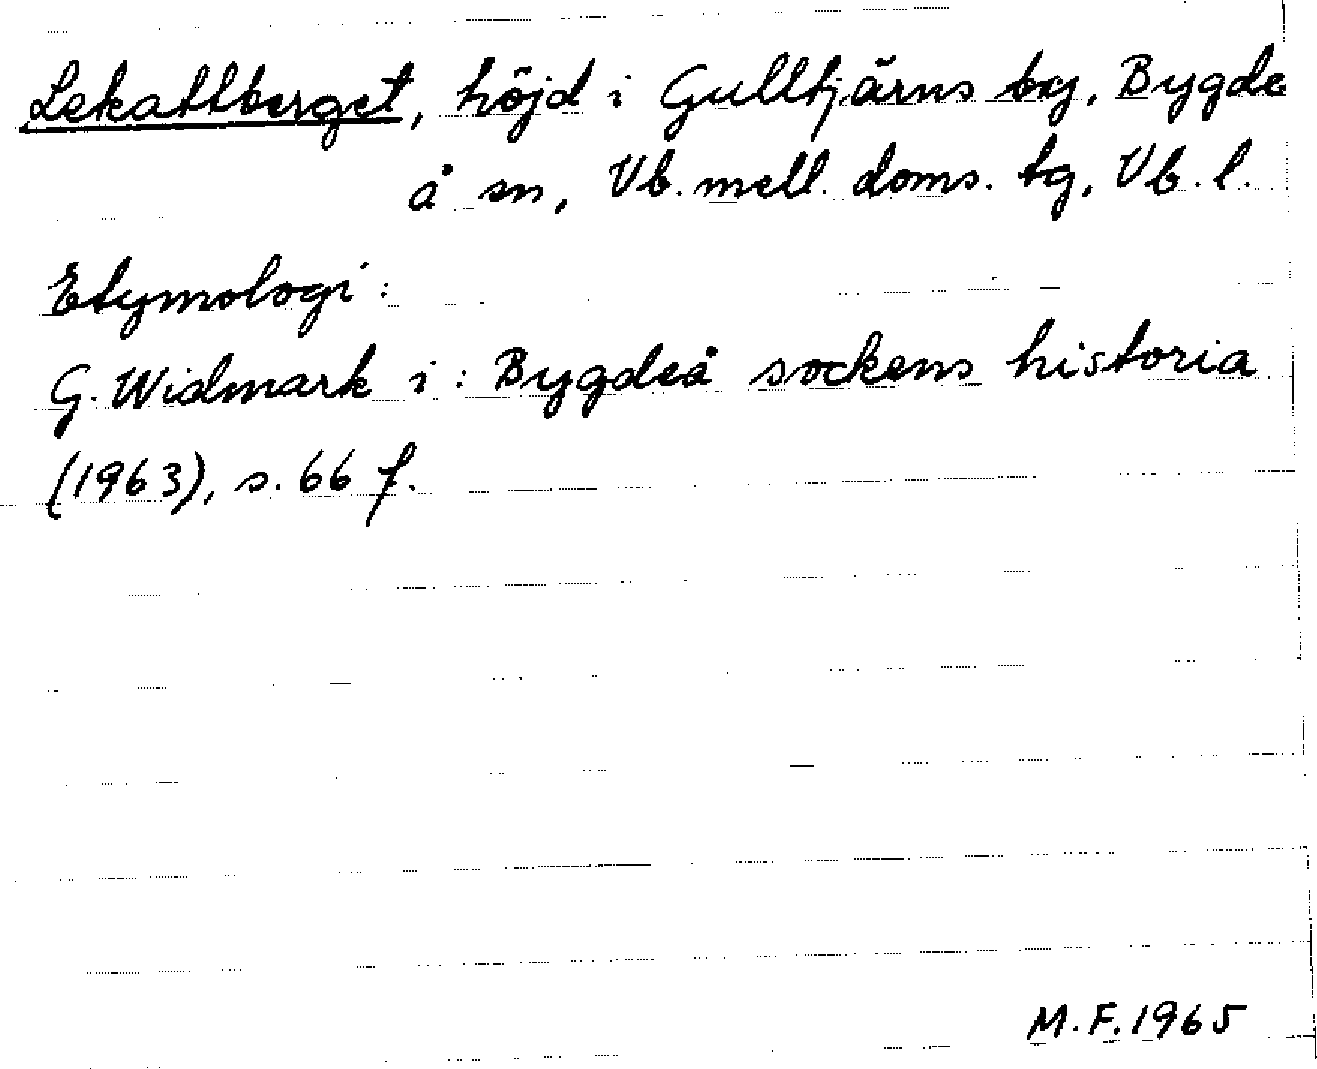 Lekattberget, höjd i Gulltjärns by, Bygde
å sn, Vb. mell. doms. tg, Vb. l.
Etymologi:
G. Widmark i: Bygdeå sockens historia
(1963), s. 66 f.
M.F. 1965